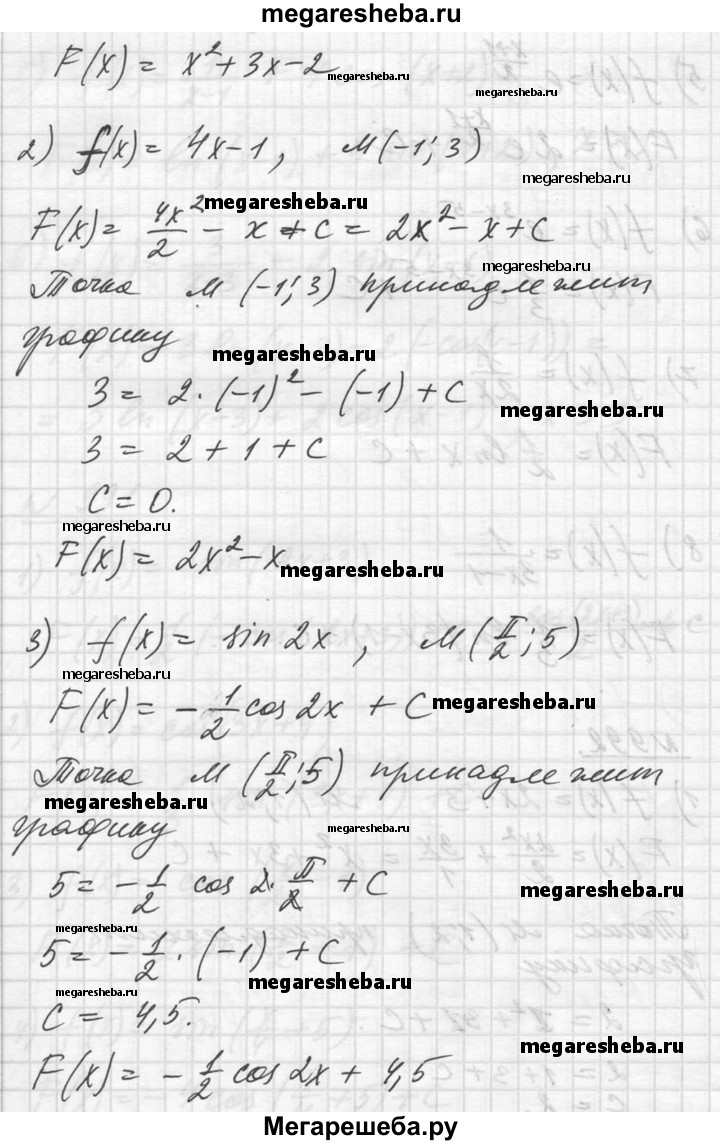 megaresheba.ru
F(x) = x² + 3x - 2
megaresheba.ru
megaresheba.ru
2) f(x) = 4x - 1, M(-1; 3)
megaresheba.ru
megaresheba.ru
F(x) = 4x²/2 - x + C = 2x² - x + C
megaresheba.ru
Точка M (-1; 3) принадлежит
графику
megaresheba.ru
3 = 2 · (-1)² - (-1) + C
megaresheba.ru
3 = 2 + 1 + C
C = 0.
megaresheba.ru
F(x) = 2x² - x.
megaresheba.ru
3) f(x) = sin 2x, M (π/2; 5)
megaresheba.ru
F(x) = - 1/2 cos 2x + C
megaresheba.ru
Точка M (π/2; 5) принадлежит
megaresheba.ru
графику
megaresheba.ru
5 = - 1/2 cos 2 · π/2 + C
megaresheba.ru
megaresheba.ru
5 = - 1/2 · (-1) + C
megaresheba.ru
megaresheba.ru
C = 4,5.
megaresheba.ru
F(x) = - 1/2 cos 2x + 4,5
Мегарешеба.ру